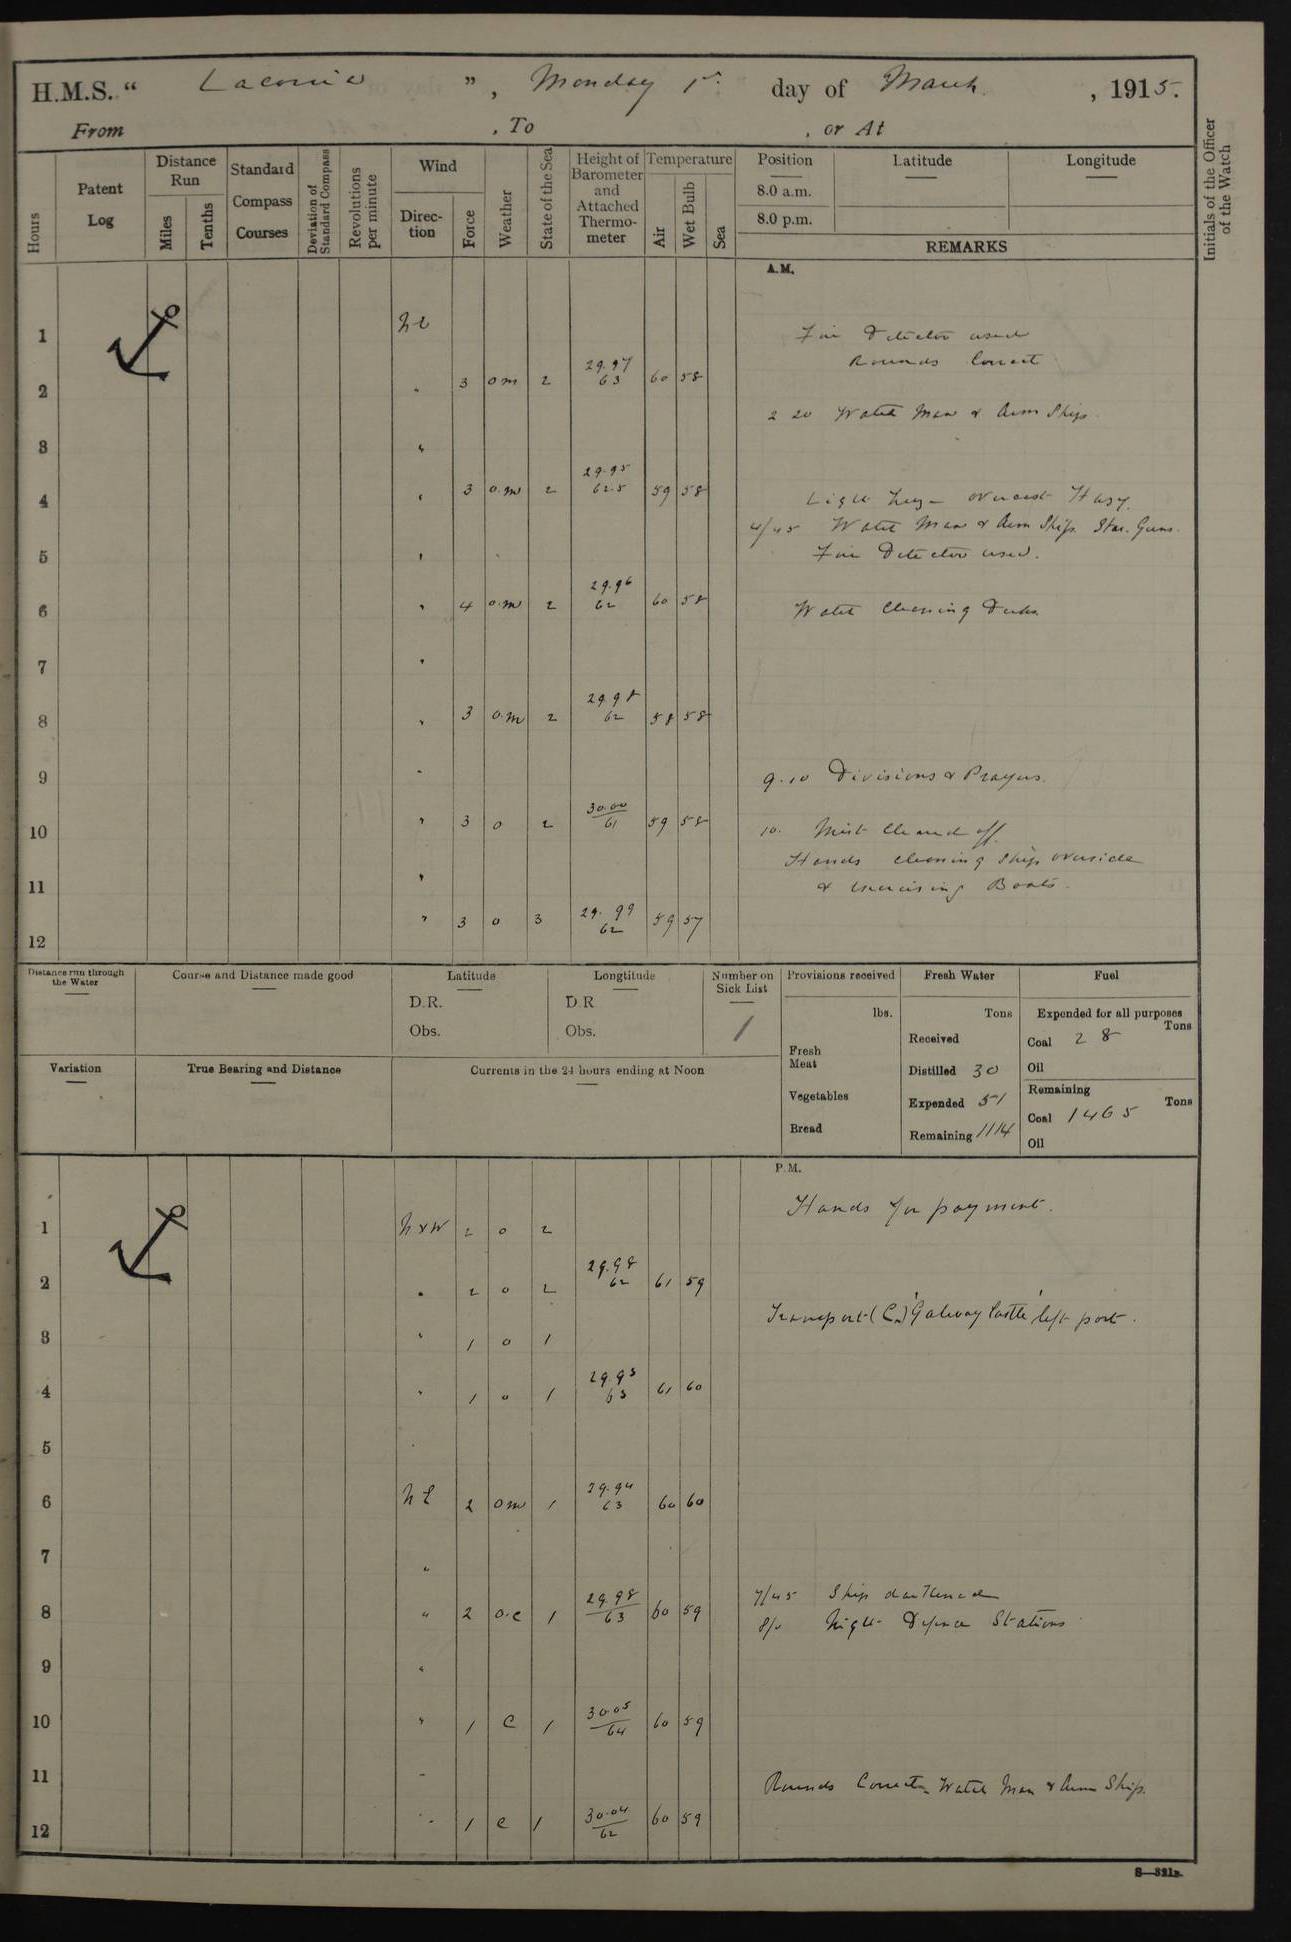 H.M.S. “ Laconia ”, Monday 1st. day of March , 1915.
From , To , or At
Hours
Patent Log
Distance Run
Miles
Tenths
Standard Compass Courses
Deviation of Standard Compass
Revolutions per minute
Wind
Direction
Force
Weather
State of the Sea
Height of Barometer and Attached Thermometer
Temperature
Air
Wet Bulb
Sea
Position
8.0 a.m.
8.0 p.m.
Latitude
Longitude
REMARKS
Initials of the Officer of the Watch
A.M.
1 NE Fire Detector used
Rounds Correct
2 " 3 om 2 29.97 63 60 58
2 20 Watch Man & Arm Ship.
3 "
4 " 3 o.m 2 29.95 62.5 59 58 Light Airs overcast Hazy.
4/45 Watch Man & Arm Ship. Star. Guns.
5 " Fire Detector used.
6 " 4 o.m 2 29.96 62 60 58 Watch Cleaning Decks
7 "
8 " 3 o.m 2 29.98 62 58 58
9 " 9.10 Divisions & Prayers.
10 " 3 o 2 30.00 61 59 58 10. Mist Cleared off.
Hands cleaning Ship overside
11 " & exercising Boats.
12 " 3 o 3 29.99 62 59 57
Distance run through the Water
Course and Distance made good
Latitude
D.R.
Obs.
Longtitude
D.R
Obs.
Number on Sick List
1
Provisions received
lbs.
Fresh Meat
Vegetables
Bread
Fresh Water
Tons
Received
Distilled 30
Expended 51
Remaining 1114
Fuel
Expended for all purposes
Tons
Coal 28
Oil
Remaining
Tons
Coal 1465
Oil
Variation
True Bearing and Distance
Currents in the 24 hours ending at Noon
P.M.
Hands for payment.
1 NxW 2 o 2
2 " 2 o 2 29.98 62 61 59
Transport (C.) 'Galway Castle' left port.
3 " 1 o 1
4 " 1 o 1 29.93 63 61 60
5
6 NE 2 om 1 29.94 63 60 60
7 "
7/45 Ship darkened
8 " 2 o.c 1 29.98 63 60 59
8/0 Night Defence Stations
9 "
10 " 1 c 1 30.05 64 60 59
11 " Rounds Correct. Watch Man & Arm Ship.
12 " 1 c 1 30.04 62 60 59
S—321B.